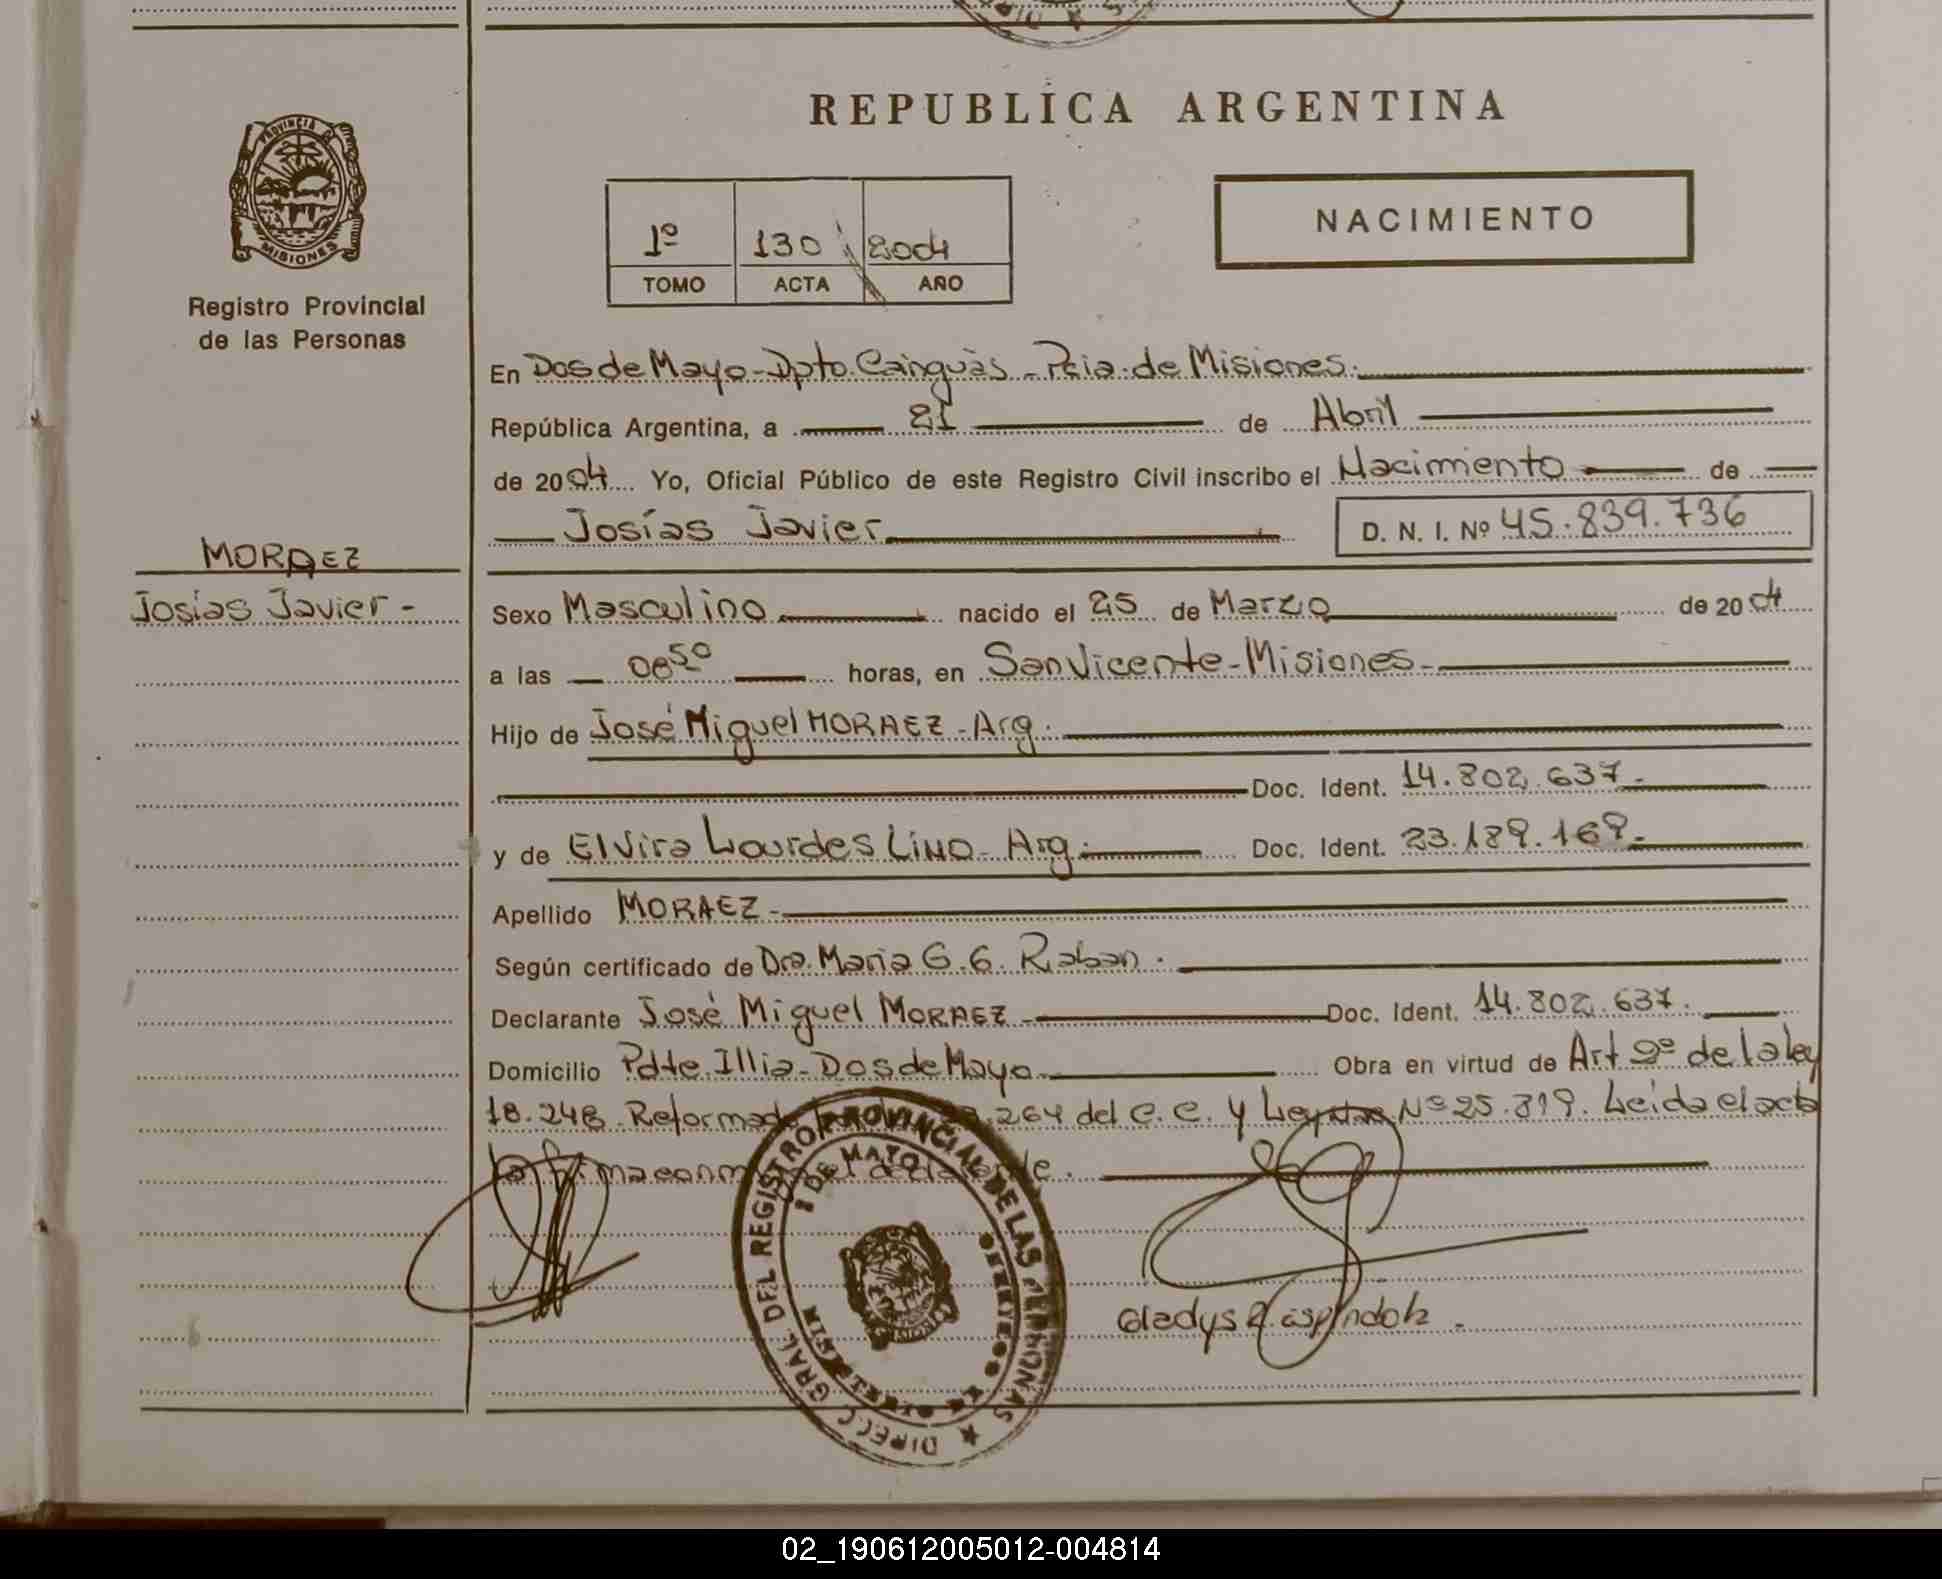 REPUBLICA ARGENTINA
PROVINCIA DE
MISIONES
Registro Provincial
de las Personas
1º 130 2004
TOMO ACTA AÑO
NACIMIENTO
En Dos de Mayo - Dpto. Cainguàs - Pcia. de Misiones.
República Argentina, a 21 de Abril
de 2004 Yo, Oficial Público de este Registro Civil inscribo el Nacimiento de
Josías Javier D. N. I. Nº 45.839.736
MORAEZ
Josías Javier -
Sexo Masculino nacido el 25 de Marzo de 2004
a las 06 50 horas, en San Vicente - Misiones -
Hijo de José Miguel MORAEZ - Arg.
Doc. Ident. 14.802.637.-
y de Elvira Lourdes LINO - Arg. Doc. Ident. 23.189.169.-
Apellido MORAEZ -
Según certificado de Dra. Maria G. G. Raban.
Declarante José Miguel MORAEZ - Doc. Ident. 14.802.637.
Domicilio Pdte. Illia - Dos de Mayo Obra en virtud de Art 9º de la ley
18.248. Reformado .264 del C. C. y Ley Nº 25.819. Leida el acta
la firma conm el declarante.
DIRECC. GRAL. DEL REGISTRO PROVINCIAL DE LAS PERSONAS
2 DE MAYO
MISIONES
Gladys R. Espindola.
02_190612005012-004814